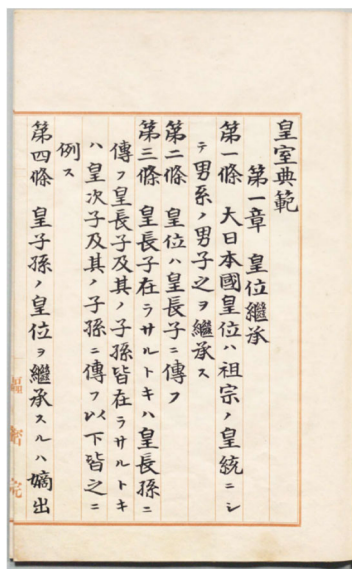 皇室典範
第一章 皇位繼承
第一條 大日本國皇位ハ祖宗ノ皇統ニシ
テ男系ノ男子之ヲ繼承ス
第二條 皇位ハ皇長子ニ傳フ
第三條 皇長子在ラサルトキハ皇長孫ニ
傳フ皇長子及其ノ子孫皆在ラサルトキ
ハ皇次子及其ノ子孫ニ傳フ以下皆之ニ
例ス
第四條 皇子孫ノ皇位ヲ繼承スルハ嫡出
樞密院